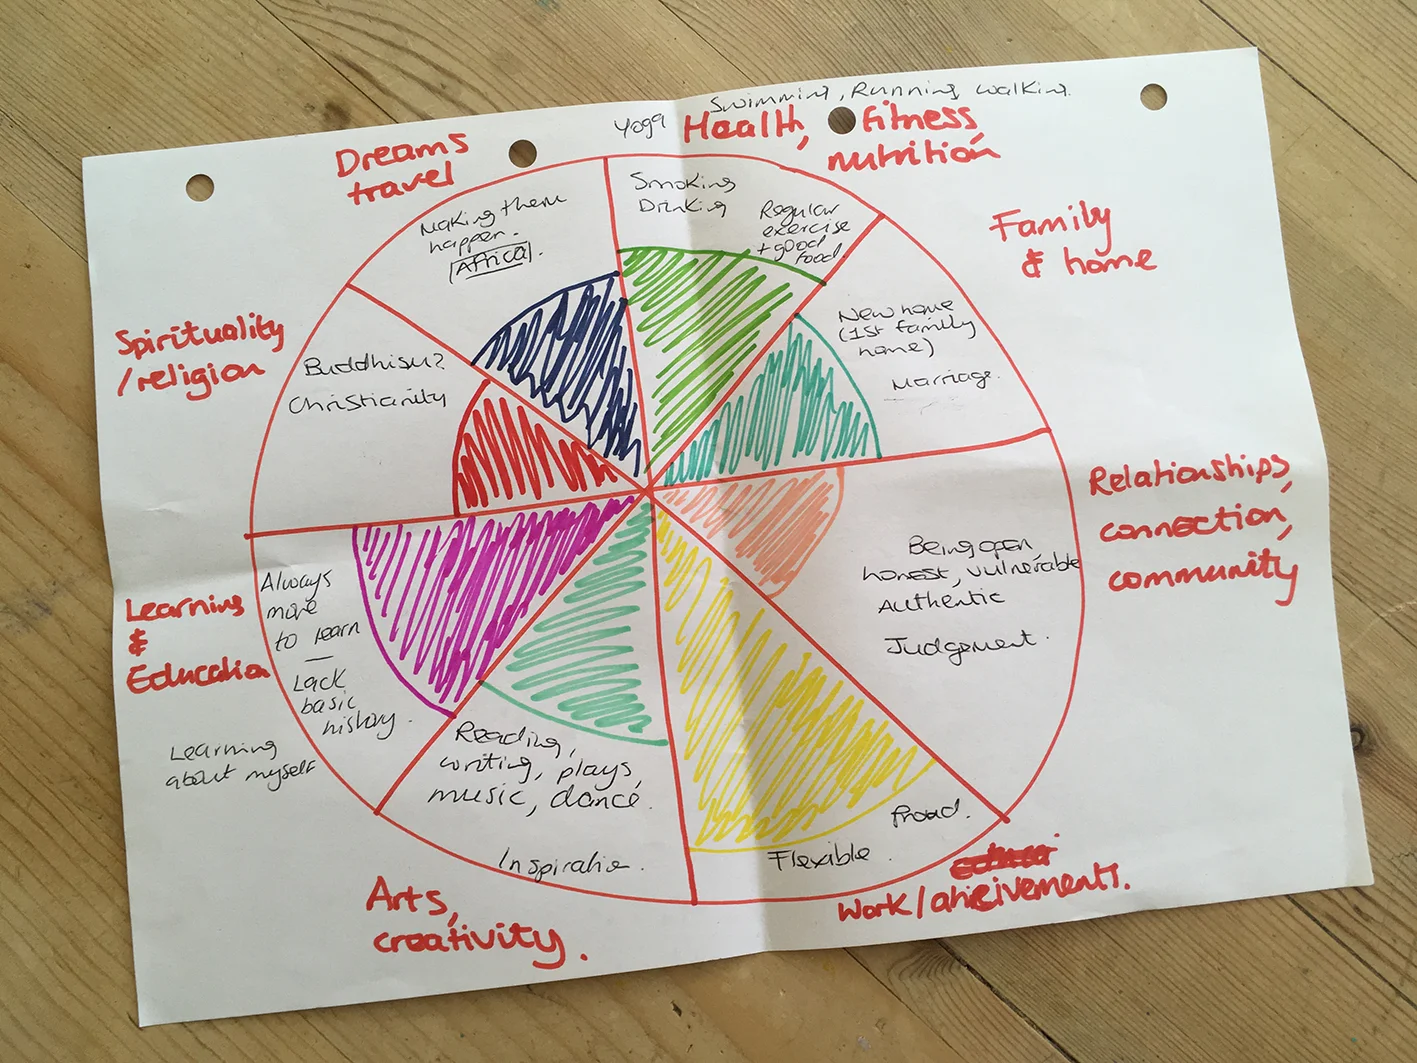 Swimming, Running, walking.
Yoga
Health, Fitness,
nutrition
Dreams
travel
Smoking
Drinking
Regular
exercise
+ good
food.
Making them
happen.
Africa.
Family
& home
New home
(1st family
home)
Marriage.
Spirituality
/religion
Buddhism?
Christianity
Relationships,
connection,
community
Being open,
honest, vulnerable
Authentic
Judgement.
Learning
&
Education
Always
more
to learn
—
Lack
basic
history.
Learning
about myself
Reading,
writing, plays,
music, dance.
Inspiration.
Proud.
Flexible.
Arts,
creativity.
Work/